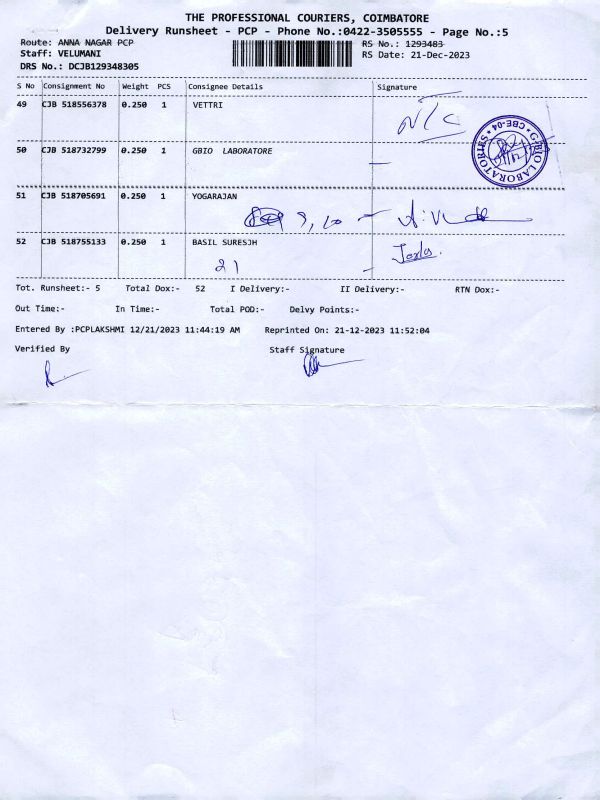 THE PROFESSIONAL COURIERS, COIMBATORE
Delivery Runsheet - PCP - Phone No.:0422-3505555 - Page No.:5
Route: ANNA NAGAR PCP RS No.: 1293483
Staff: VELUMANI RS Date: 21-Dec-2023
DRS No.: DCJB129348305
S No Consignment No Weight PCS Consignee Details Signature
49 CJB 518556378 0.250 1 VETTRI
N/C
50 CJB 518732799 0.250 1 GBIO LABORATORE
GBIO LABORATORIES * CBE-04 *
51 CJB 518705691 0.250 1 YOGARAJAN
52 CJB 518755133 0.250 1 BASIL SURESJH
21
Tot. Runsheet:- 5 Total Dox:- 52 I Delivery:- II Delivery:- RTN Dox:-
Out Time:- In Time:- Total POD:- Delvy Points:-
Entered By :PCPLAKSHMI 12/21/2023 11:44:19 AM Reprinted On: 21-12-2023 11:52:04
Verified By Staff Signature